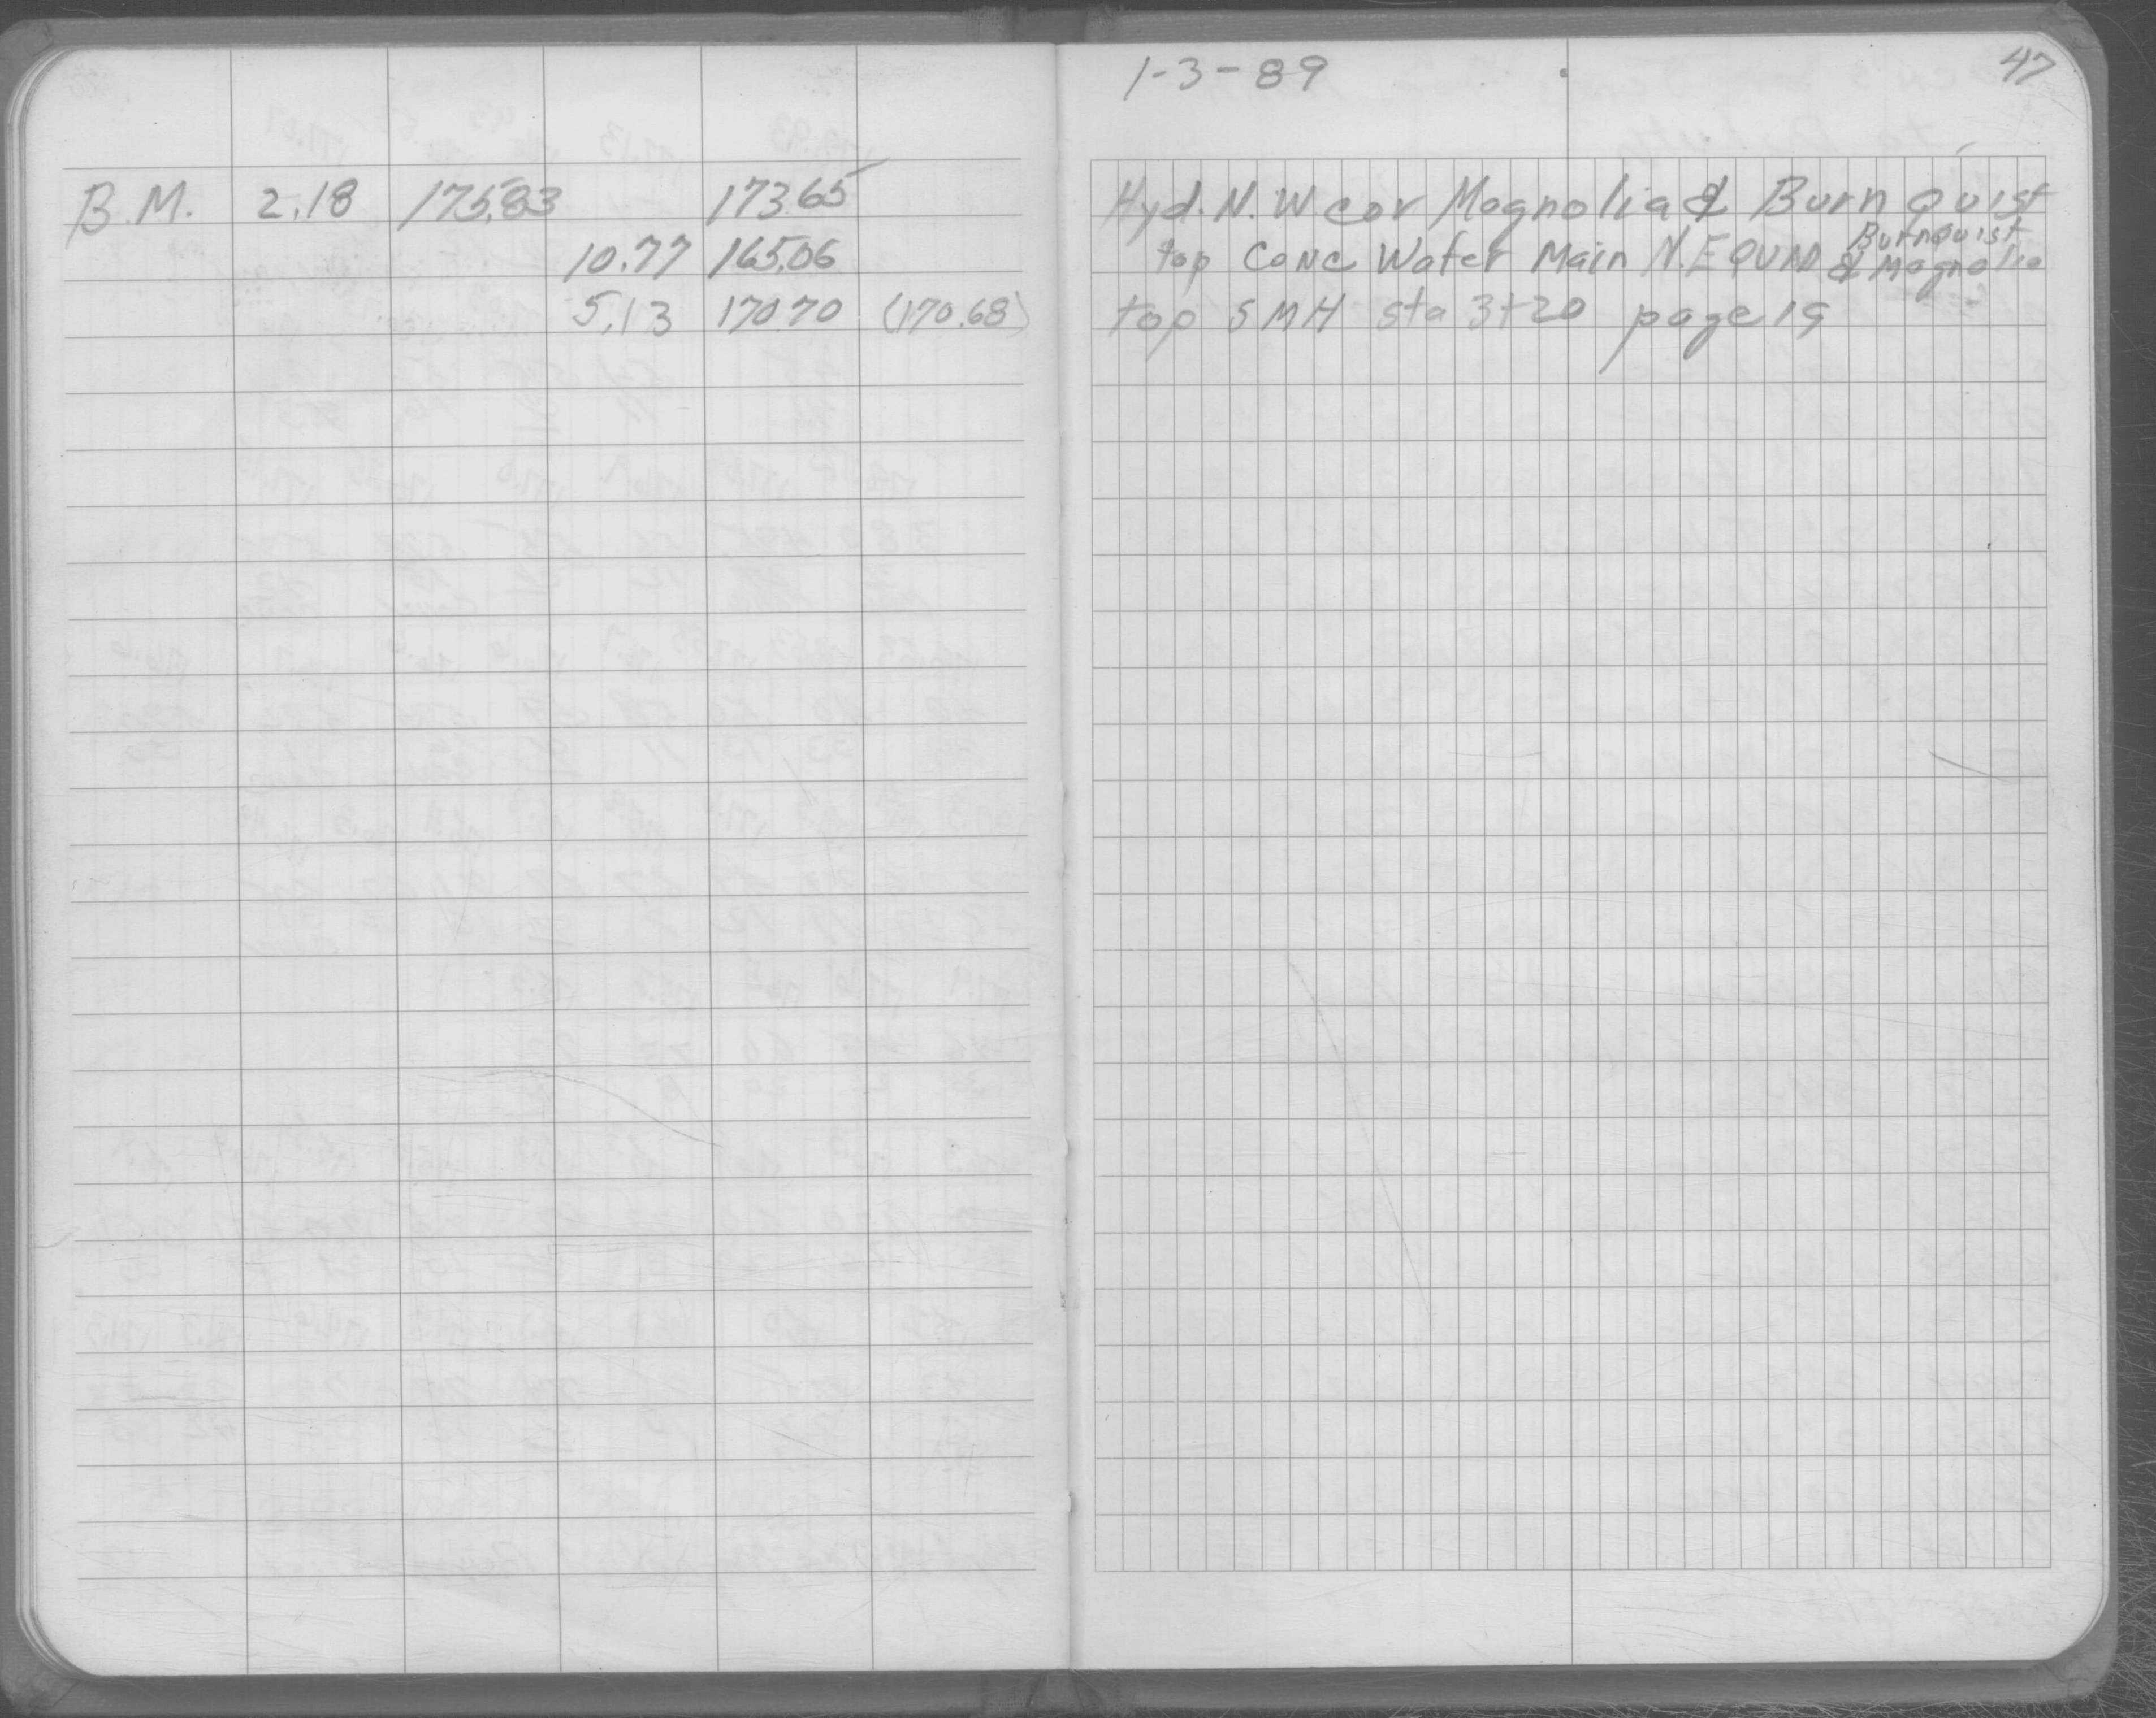 1-3-89 47
B.M. 2.18 175.83 173.65 Hyd. N.W cor Magnolia & Burnquist
10.77 165.06 top Conc Water Main N.E QUAD Burnquist & Magnolia
5.13 170.70 (170.68) top SMH sta 3+20 page 19